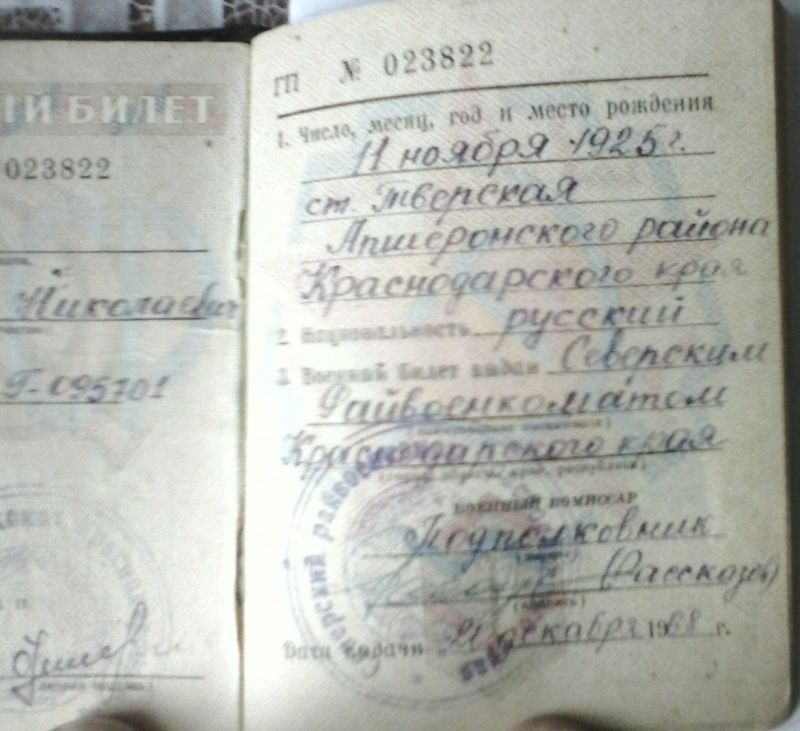 ЫЙ БИЛЕТ
023822
Николаевич
Г-095701
ГП № 023822
1. Число, месяц, год и место рождения
11 ноября 1925 г.
ст. Тверская
Апшеронского района
Краснодарского края
2. Национальность русский
3. Военный билет выдан Северским
Райвоенкоматом
Краснодарского края
ВОЕННЫЙ КОМИССАР
Подполковник
(Рассказов)
(подпись)
Дата выдачи декабря 1968 г.